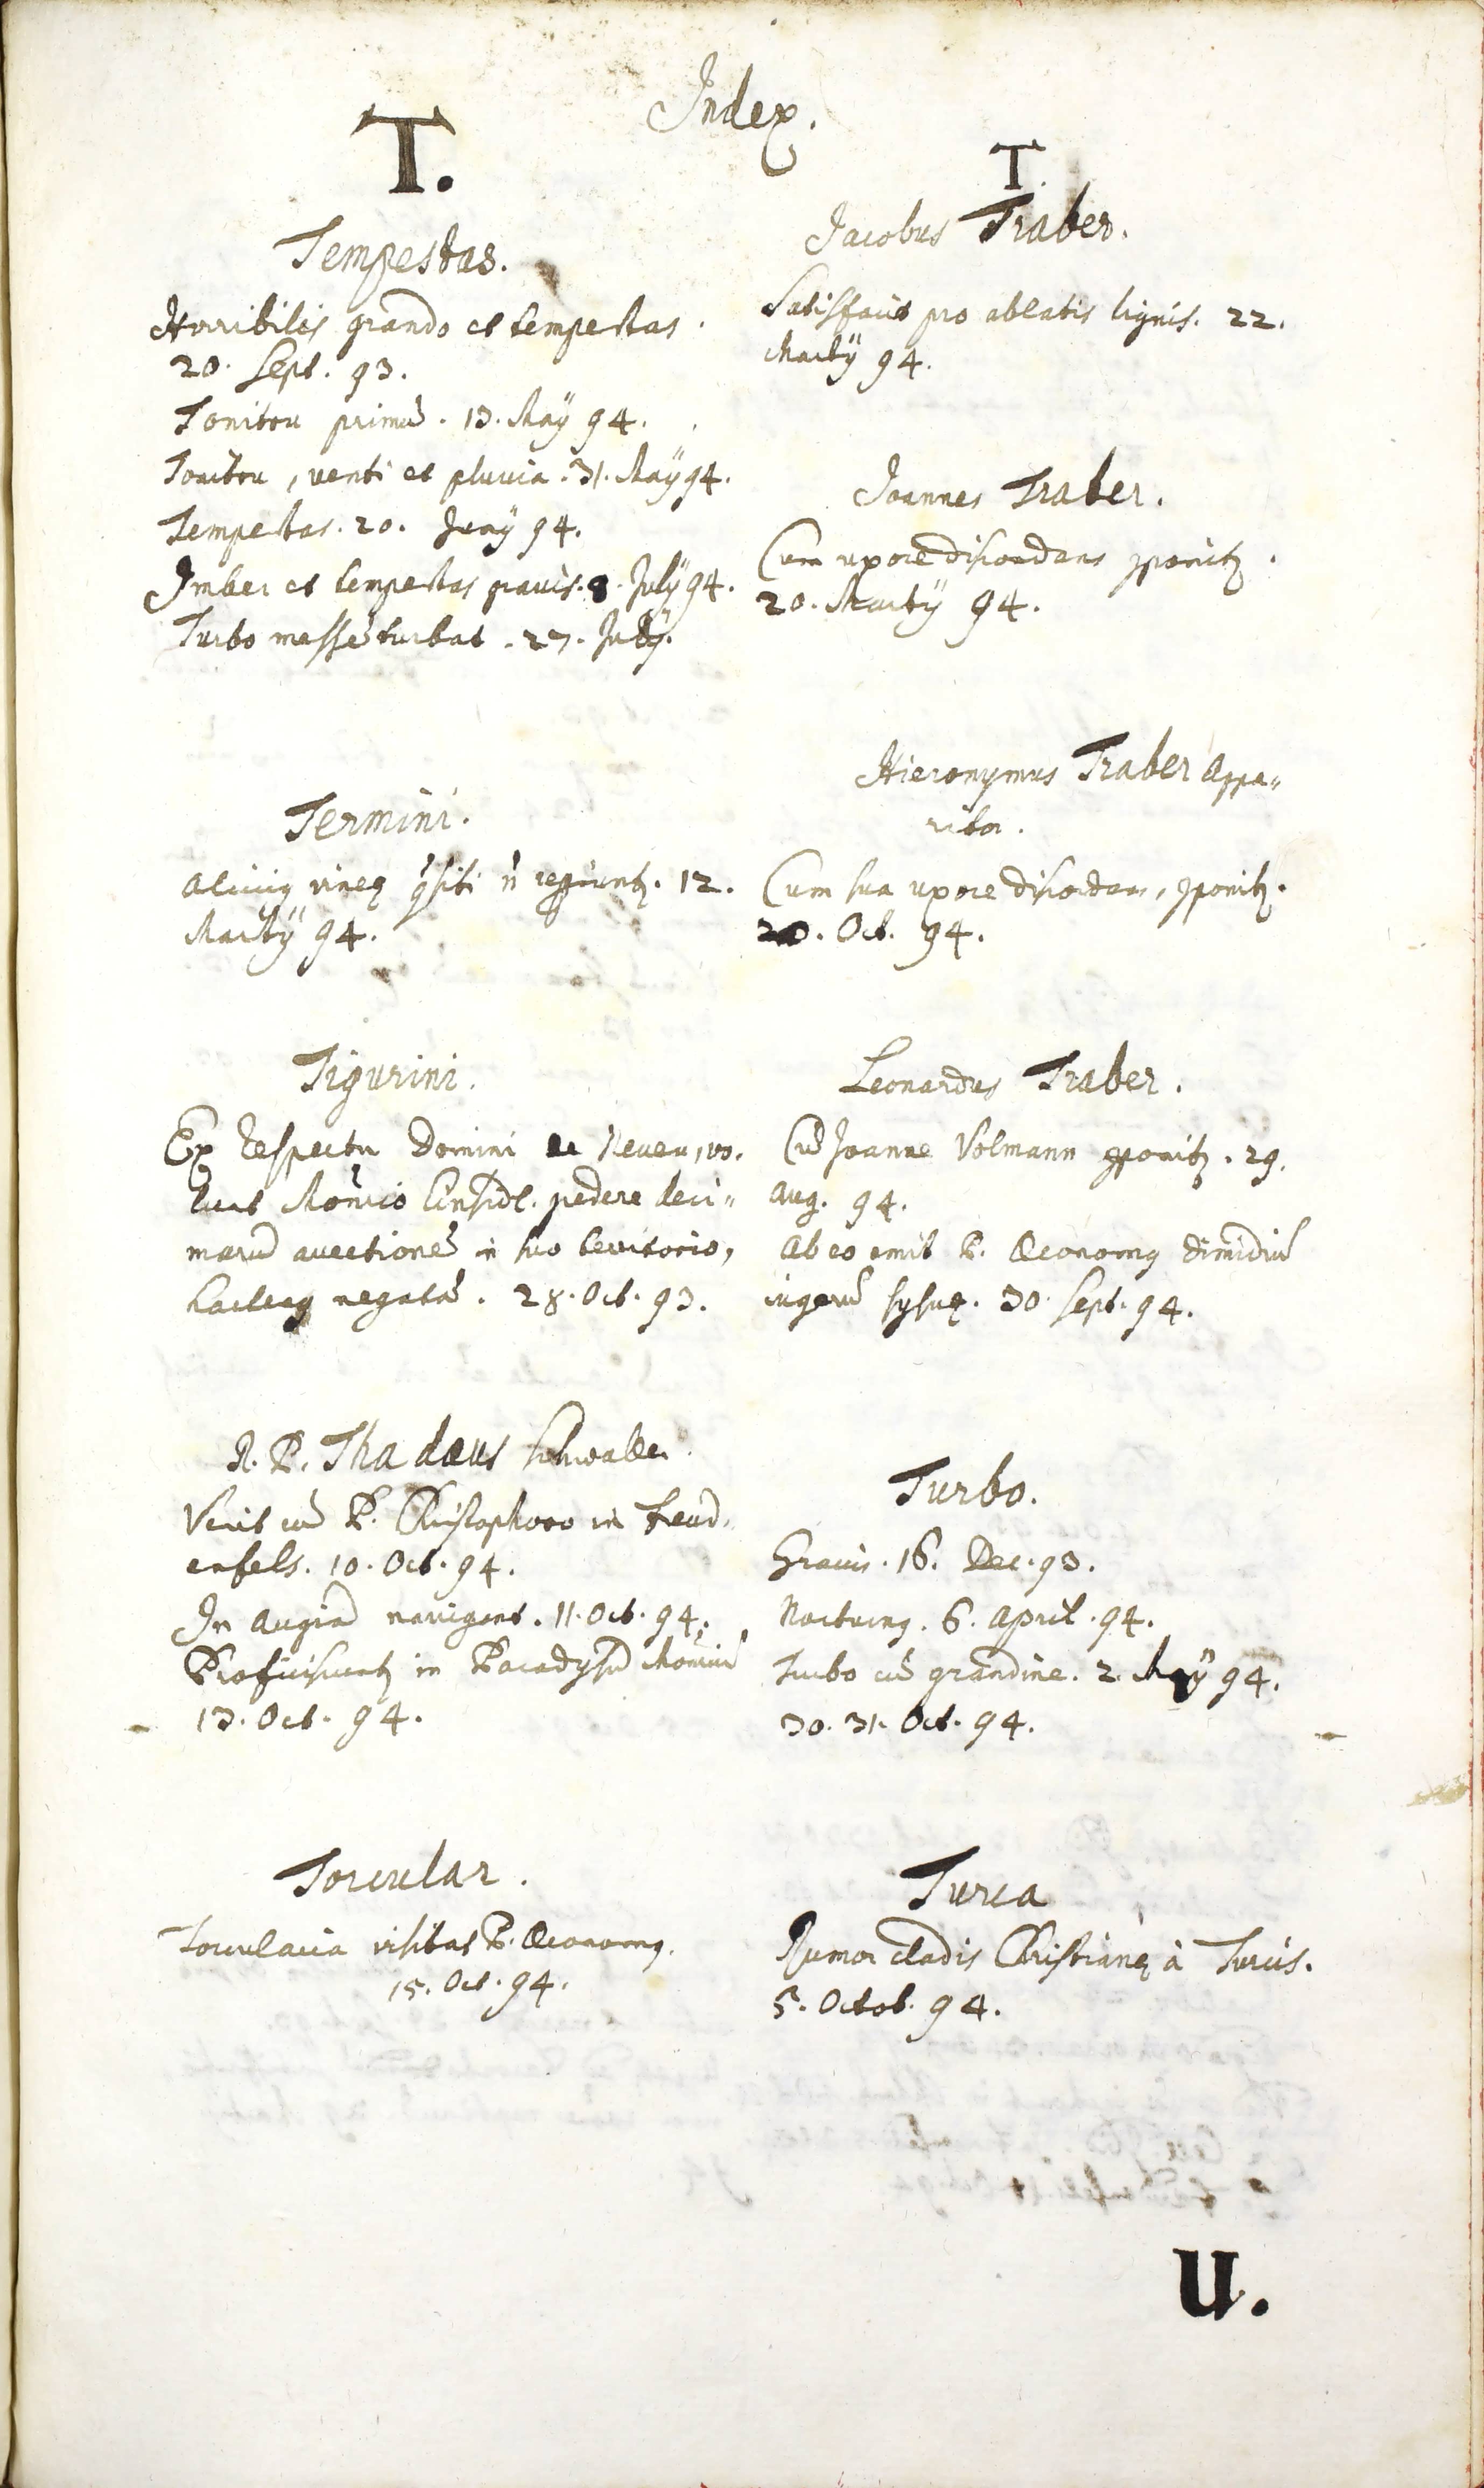 Index.
T.
Tempestas.
Horribilis grando et tempestas.
20. Sept. 93.
Tonitru primũ. 13. Maÿ 94.
Tonitru, venti et pluuia. 31. Maÿ 94.
Tempestas. 20. Junÿ 94.
Imber et tempestas grauis. 8. Julÿ 94.
Turbo messẽ turbat. 27. Julÿ.
Termini.
vineę q̃siti ñ 12.
Martÿ 94.
Tigurini.
Ex respectu Domini de Neueu, vo,
lunt Mon̄rio Einsidl. pedere deci„
marũ auectionẽ in suo territorio,
hactenꝰ negatã. 28. Oct. 93.
R. P. Thadæus Schwaller.
Venit cũ P. Christophoro in Freud,
enfels. 10. Oct. 94.
In Augiã nauigant. 11. Oct. 94.
Proficiscuntꝶ in Paradysũ
13. Oct. 94.
Torcular.
Torcularia visitat P. Oeconomꝰ.
15. Oct. 94.
T.
Jacobus Traber.
Satisfacit pro ablatis lignis. 22.
Martÿ 94.
Joannes Traber.
Cum uxore discordans ꝯponitꝶ.
20. Martÿ 94.
Hieronymus Traber Appa„
ritor.
Cum sua uxore discordans, ꝯponitꝶ.
20. Oct. 94.
Leonardus Traber.
Cũ Joanne Volmann ꝯponitꝶ. 29.
Aug. 94.
Ab eo emit P. Oeconomꝰ dimidiũ
iugerũ syluę. 30. Sept. 94.
Turbo.
Grauis. 16. Dec. 93.
Nocturnꝰ. 6. April. 94.
Turbo cũ grandine. 2. Maÿ 94.
30. 31. Oct. 94.
Turca
Rumor cladis Christianę à Turcis.
5. Octob. 94.
U.